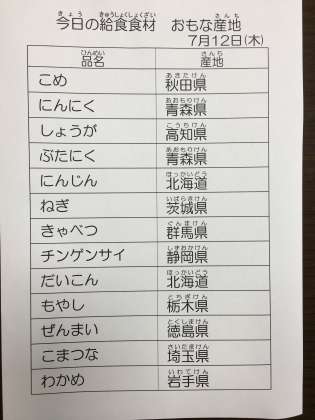 今日の給食食材 おもな産地
7月12日(木)
品名 産地
こめ 秋田県
にんにく 青森県
しょうが 高知県
ぶたにく 青森県
にんじん 北海道
ねぎ 茨城県
きゃべつ 群馬県
チンゲンサイ 静岡県
だいこん 北海道
もやし 栃木県
ぜんまい 徳島県
こまつな 埼玉県
わかめ 岩手県